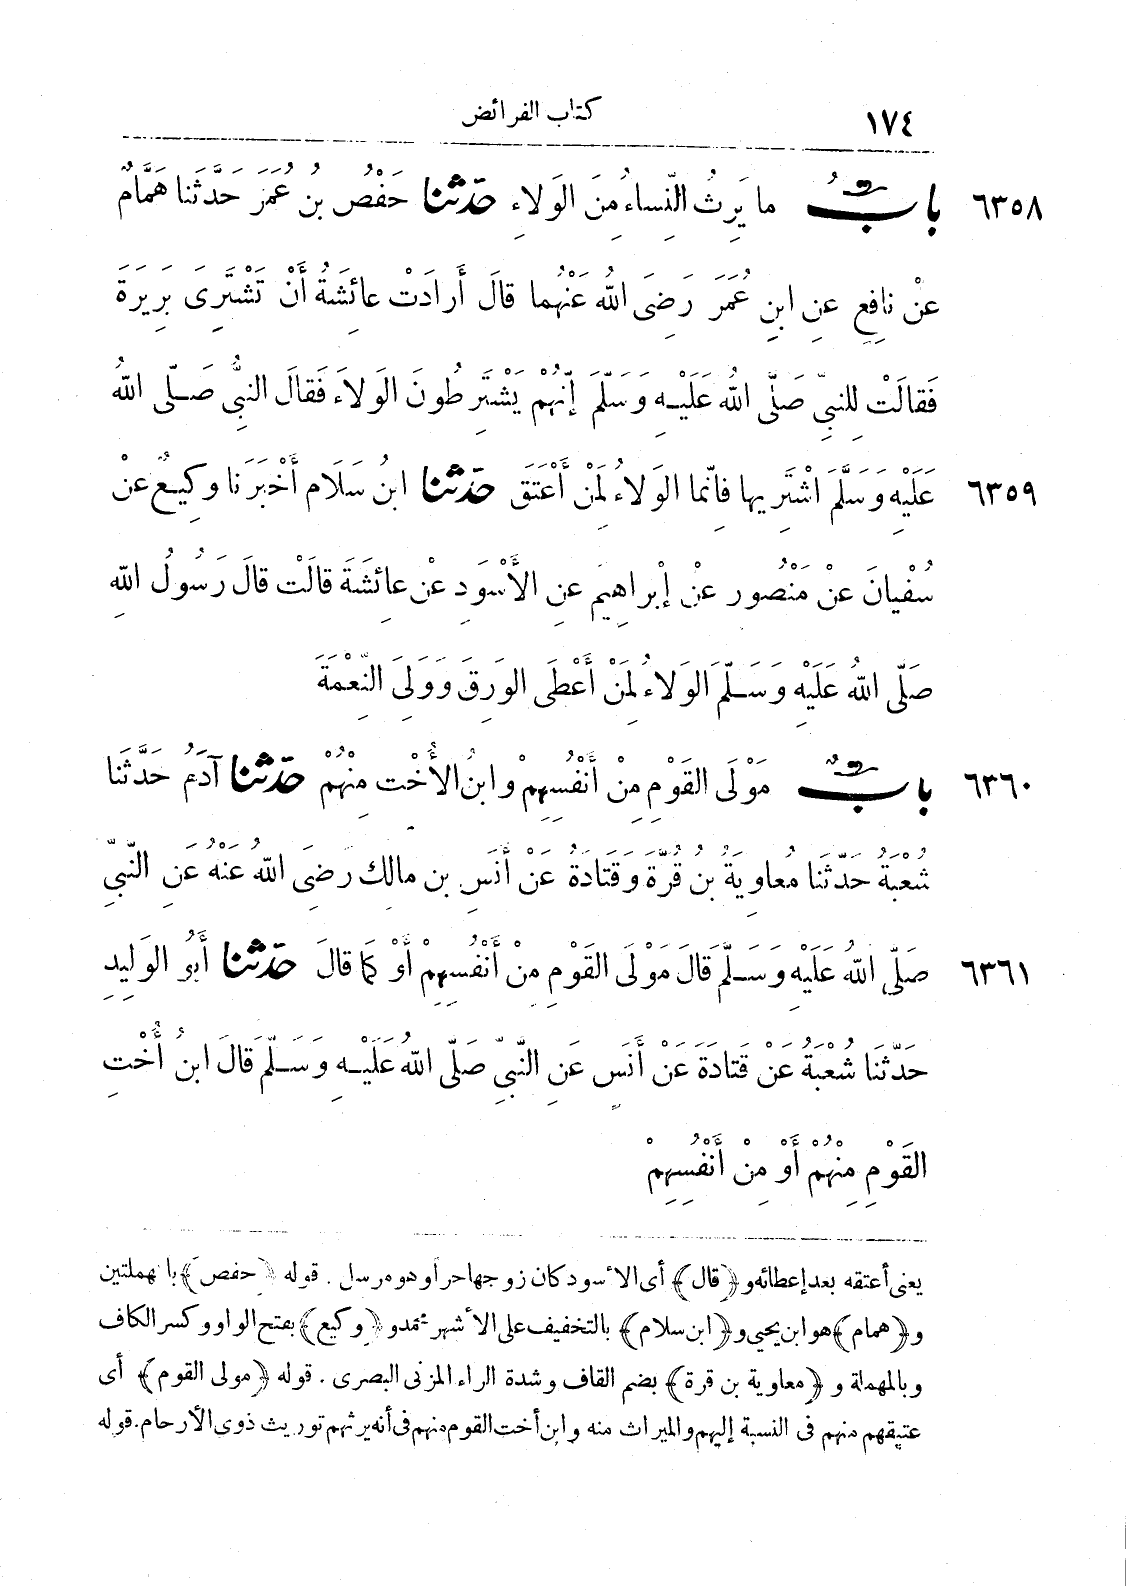 ١٧٤ كتاب الفرائض
٦٣٥٨ بابٌ ما يَرِثُ النِّساءُ مِنَ الوَلاءِ حدّثنا حَفْصُ بن عُمَرَ حَدَّثَنا هَمَّامٌ
عَنْ نافِعٍ عنِ ابنِ عُمَرَ رَضِىَ اللهُ عَنْهُما قالَ أَرادَتْ عائِشَةُ أَنْ تَشْتَرِىَ بَرِيرَةَ
فَقالَتْ لِلنبىِّ صَلَّى اللهُ عَلَيْهِ وَسَلَّمَ إنَّهُمْ يَشْتَرِطُونَ الوَلاءَ فَقالَ النبىُّ صَلَّى اللهُ
٦٣٥٩ عَلَيْهِ وَسَلَّمَ اشْتَرِيها فإنَّما الوَلاءُ لِمَنْ أَعْتَقَ حدّثنا ابنُ سَلَام أَخْبَرَنا وكِيعٌ عنْ
سُفْيانَ عَنْ مَنْصُورٍ عنْ إبْراهِيمَ عنِ الأَسْوَدِ عنْ عائِشَةَ قالَتْ قالَ رَسُولُ اللهِ
صَلَّى اللهُ عَلَيْهِ وَسَلَّمَ الوَلاءُ لِمَنْ أَعْطَى الوَرِقَ وَوَلِىَ النِّعْمَةَ
٦٣٦٠ بابٌ مَوْلَى القَوْمِ مِنْ أَنْفُسِهِمْ وابنُ الأُخْتِ مِنْهُمْ حدّثنا آدَمُ حَدَّثَنا
شُعْبَةُ حَدَّثَنا مُعاوِيَةُ بنُ قُرَّةَ وقَتادَةُ عَنْ أَنَسِ بن مالِكٍ رَضِىَ اللهُ عَنْهُ عَنِ النَّبِىِّ
٦٣٦١ صَلَّى اللهُ عَلَيْهِ وَسَلَّمَ قالَ مَوْلَى القَوْمِ مِنْ أَنْفُسِهِمْ أَوْ كَمَا قالَ حدّثنا أَبُو الوَلِيدِ
حَدَّثَنا شُعْبَةُ عَنْ قَتادَةَ عَنْ أَنَسٍ عَنِ النَّبىِّ صَلَّى اللهُ عَلَيْهِ وَسَلَّمَ قالَ ابنُ أُخْتِ
القَوْمِ مِنْهُمْ أَوْ مِنْ أَنْفُسِهِمْ
يعنى أعتقه بعد إعطائه و﴿قال﴾ أى الأسود كان زوجها حرا وهو مرسل . قوله ﴿حفص﴾ بالمهملتين
و﴿همام﴾ هو ابن يحيى و﴿ابن سلام﴾ بالتخفيف على الأشهر محمد و﴿وكيع﴾ بفتح الواو وكسر الكاف
وبالمهملة و ﴿معاوية بن قرة﴾ بضم القاف وشدة الراء المزنى البصرى . قوله ﴿مولى القوم﴾ أى
عتيقهم منهم فى النسبة إليهم والميراث منه وابن أخت القوم منهم فى أنه يرثهم توريث ذوى الأرحام. قوله